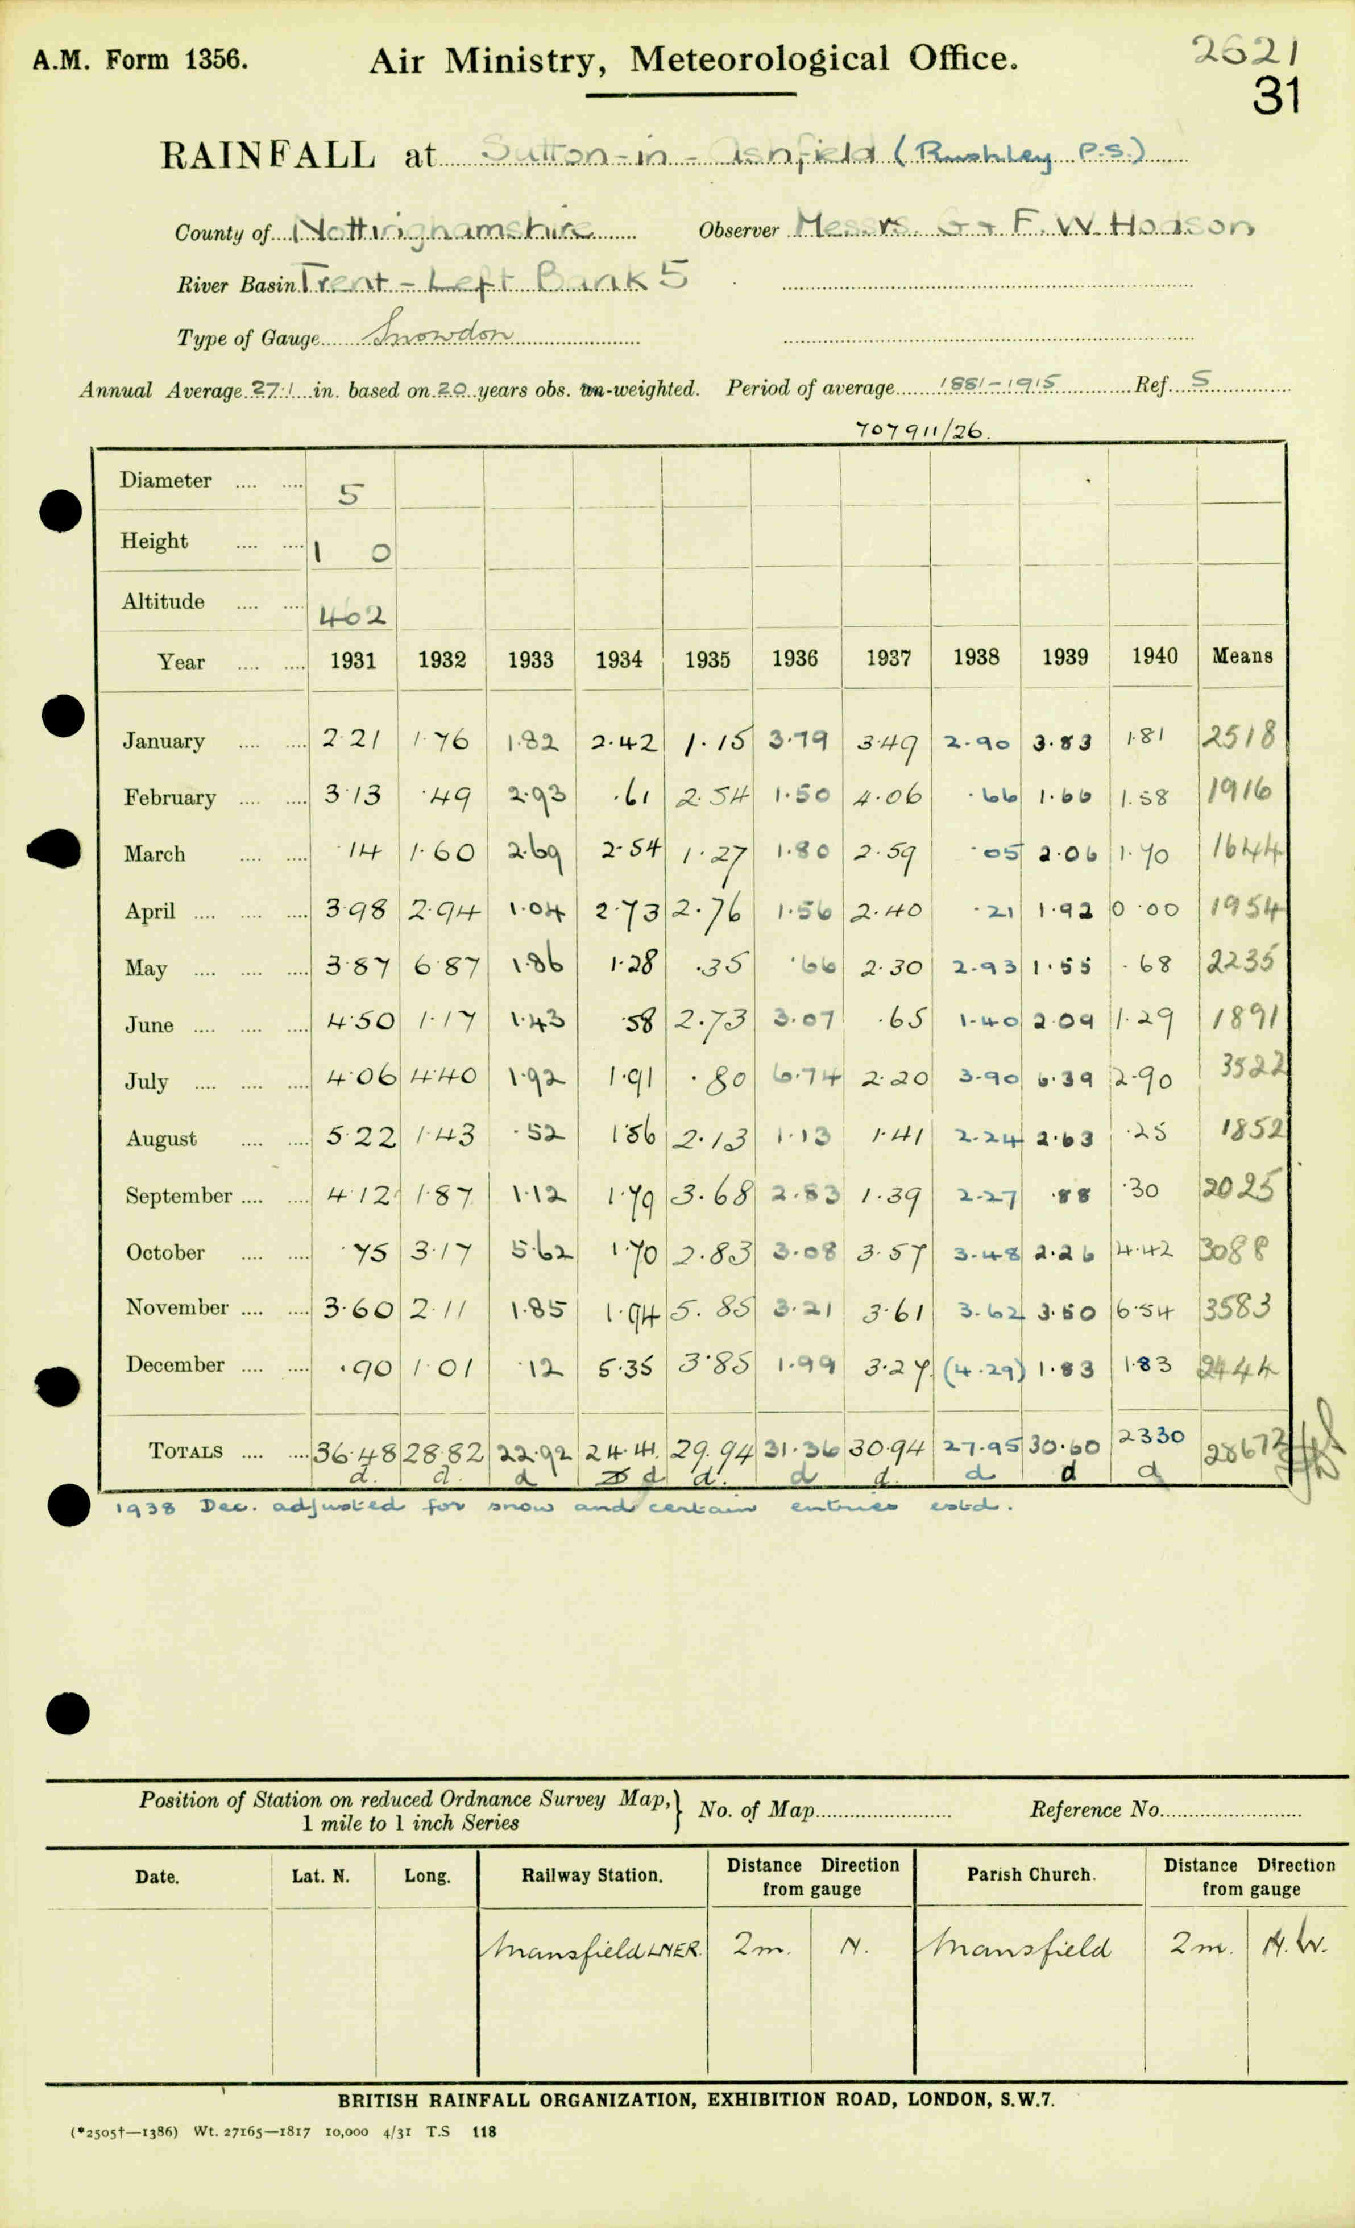 A.M. Form 1356. Air Ministry, Meteorological Office. 2621
31
RAINFALL at Sutton-in-Ashfield (Rushley P.S.)
County of Nottinghamshire Observer Messrs. G & F. W. Hodson
River Basin Trent - Left Bank 5
Type of Gauge Snowdon
Annual Average 27.1 in. based on 20 years obs. un-weighted. Period of average 1881-1915 Ref. S
707911/26.
Diameter 5
Height 1 0
Altitude 462
Year 1931 1932 1933 1934 1935 1936 1937 1938 1939 1940 Means
January 2.21 1.76 1.82 2.42 1.15 3.79 3.49 2.90 3.83 1.81 2518
February 3.13 .49 2.93 .61 2.54 1.50 4.06 .66 1.66 1.58 1916
March .14 1.60 2.69 2.54 1.27 1.80 2.59 .05 2.06 1.70 1644
April 3.98 2.94 1.04 2.73 2.76 1.56 2.40 .21 1.92 0.00 1954
May 3.87 6.87 1.86 1.28 .35 .66 2.30 2.93 1.55 .68 2235
June 4.50 1.17 1.43 .58 2.73 3.07 .65 1.40 2.09 1.29 1891
July 4.06 4.40 1.92 1.91 .80 6.74 2.20 3.90 6.39 2.90 3522
August 5.22 1.43 .52 1.56 2.13 1.13 1.41 2.24 2.63 .25 1852
September 4.12 1.87 1.12 1.79 3.68 2.83 1.39 2.27 .88 .30 2025
October .75 3.17 5.62 1.70 2.83 3.08 3.57 3.48 2.26 4.42 3088
November 3.60 2.11 1.85 1.94 5.85 3.21 3.61 3.62 3.50 6.54 3583
December .90 1.01 .12 5.35 3.85 1.99 3.27 (4.29) 1.83 1.83 2444
TOTALS 36.48 28.82 22.92 24.41 29.94 31.36 30.94 27.95 30.60 23.30 28672
d. d. d d d. d d. d d d
1938 Dec. adjusted for snow and certain entries estd.
Position of Station on reduced Ordnance Survey Map, 1 mile to 1 inch Series } No. of Map Reference No.
Date. Lat. N. Long. Railway Station. Distance Direction from gauge Parish Church. Distance Direction from gauge
Mansfield LNER. 2m. N. Mansfield 2m. N.W.
BRITISH RAINFALL ORGANIZATION, EXHIBITION ROAD, LONDON, S.W.7.
(*2505†—1386) Wt. 27165—1817 10,000 4/31 T.S 118